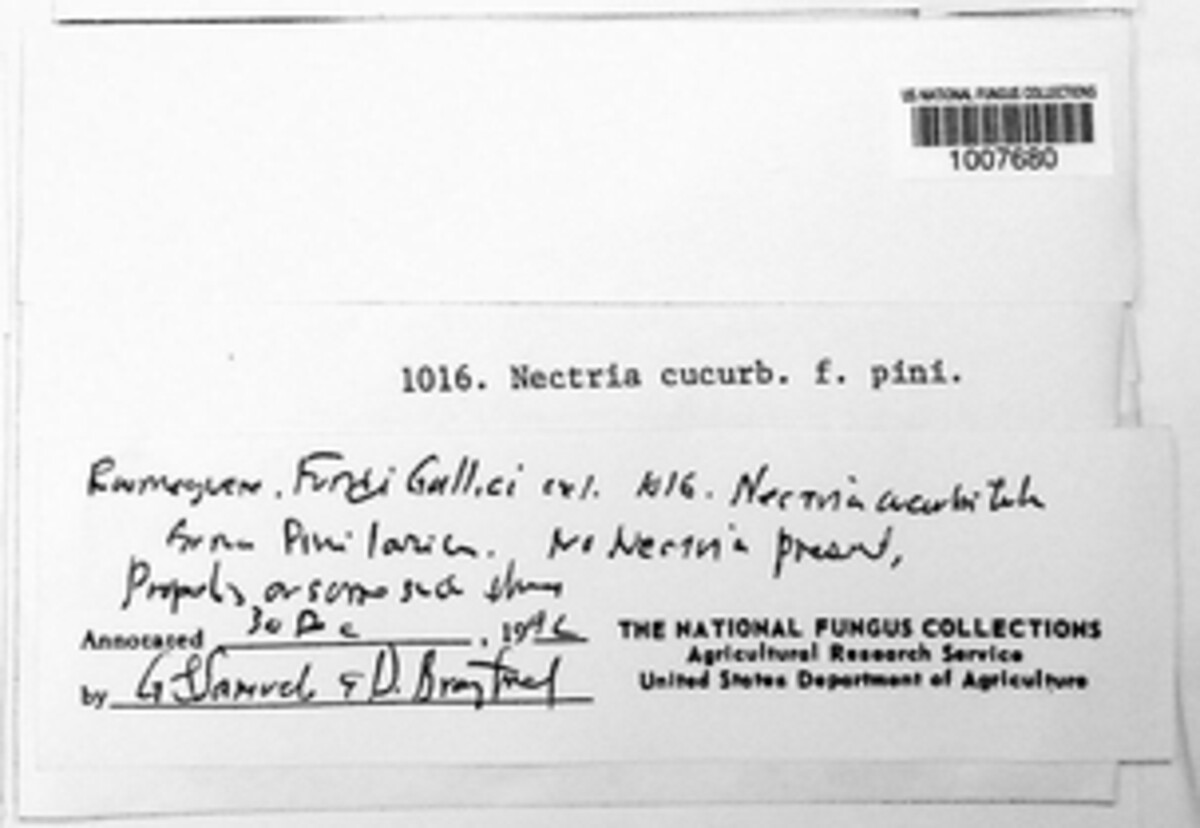 US NATIONAL FUNGUS COLLECTIONS
1007680
1016. Nectria cucurb. f. pini.
Roumeguere. Fungi Gallici exs. 1016. Nectria cucurbitula
forma Pini laricis. No Nectria present,
Propolis or some such thing
Annotated 30 Dec , 19
by G Samuels & D. Brayford
THE NATIONAL FUNGUS COLLECTIONS
Agricultural Research Service
United States Department of Agriculture